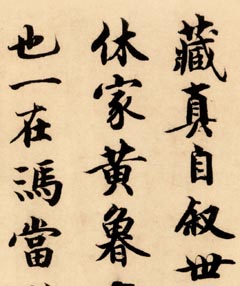 藏真自叙世
休家黄魯
也一在馮當